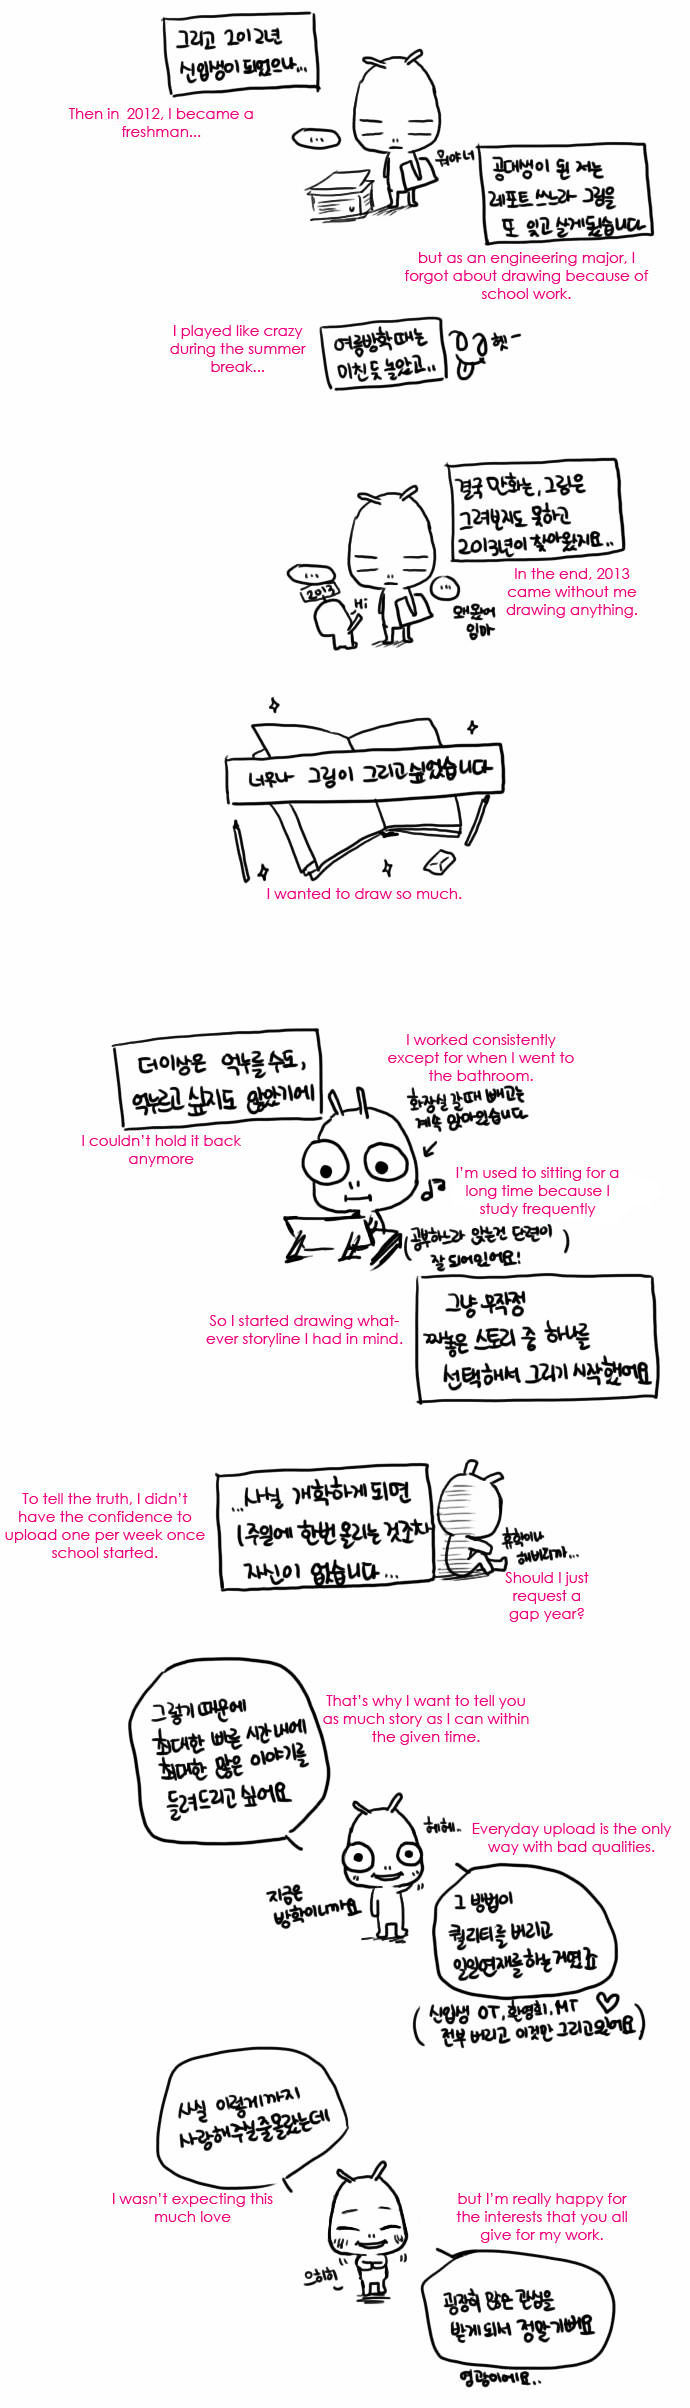 그리고 2012년
신입생이 되었으나...
Then in 2012, I became a
freshman...
...
뭐야 너
공대생이 된 저는
레포트 쓰느라 그림을
또 잊고 살게됬습니다
but as an engineering major, I
forgot about drawing because of
school work.
I played like crazy
during the summer
break...
여름방학 때는
미친듯 놀았고..
헷~
결국 만화는, 그림은
그려보지도 못하고
2013년이 찾아왔지요..
In the end, 2013
came without me
drawing anything.
...
2013
Hi
...
왜왔어
임마
너무나 그림이 그리고싶었습니다
I wanted to draw so much.
더이상은 억누를수도,
억누르고 싶지도 않았기에
I couldn't hold it back
anymore
I worked consistently
except for when I went to
the bathroom.
화장실 갈때 빼고는
계속 앉아있습니다
I'm used to sitting for a
long time because I
study frequently
(공부하느라 앉는건 단련이
잘 되어있어요!)
So I started drawing what-
ever storyline I had in mind.
그냥 무작정
짜놓은 스토리 중 하나를
선택해서 그리기 시작했어요
To tell the truth, I didn't
have the confidence to
upload one per week once
school started.
...사실 개학하게되면
1주일에 한번 올리는 것조차
자신이 없습니다...
휴학이나
해버리까...
Should I just
request a
gap year?
그렇기 때문에
최대한 빠른 시간 내에
최대한 많은 이야기를
들려드리고 싶어요
That's why I want to tell you
as much story as I can within
the given time.
헤헤..
지금은
방학이니까요
Everyday upload is the only
way with bad qualities.
그 방법이
퀄리티를 버리고
일일연재를 하는거였죠
(신입생 OT, 환영회, MT ♡
전부 버리고 이것만 그리고있어요)
사실 이렇게까지
사랑해주실줄몰랐는데
I wasn't expecting this
much love
으히히
but I'm really happy for
the interests that you all
give for my work.
굉장히 많은 관심을
받게되서 정말기뻐요
영광이에요..